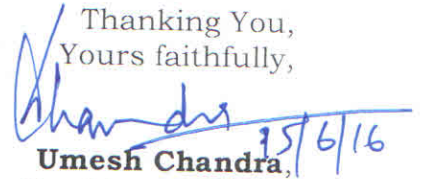 Thanking You,
Yours faithfully,
Chandra 15/6/16
Umesh Chandra,